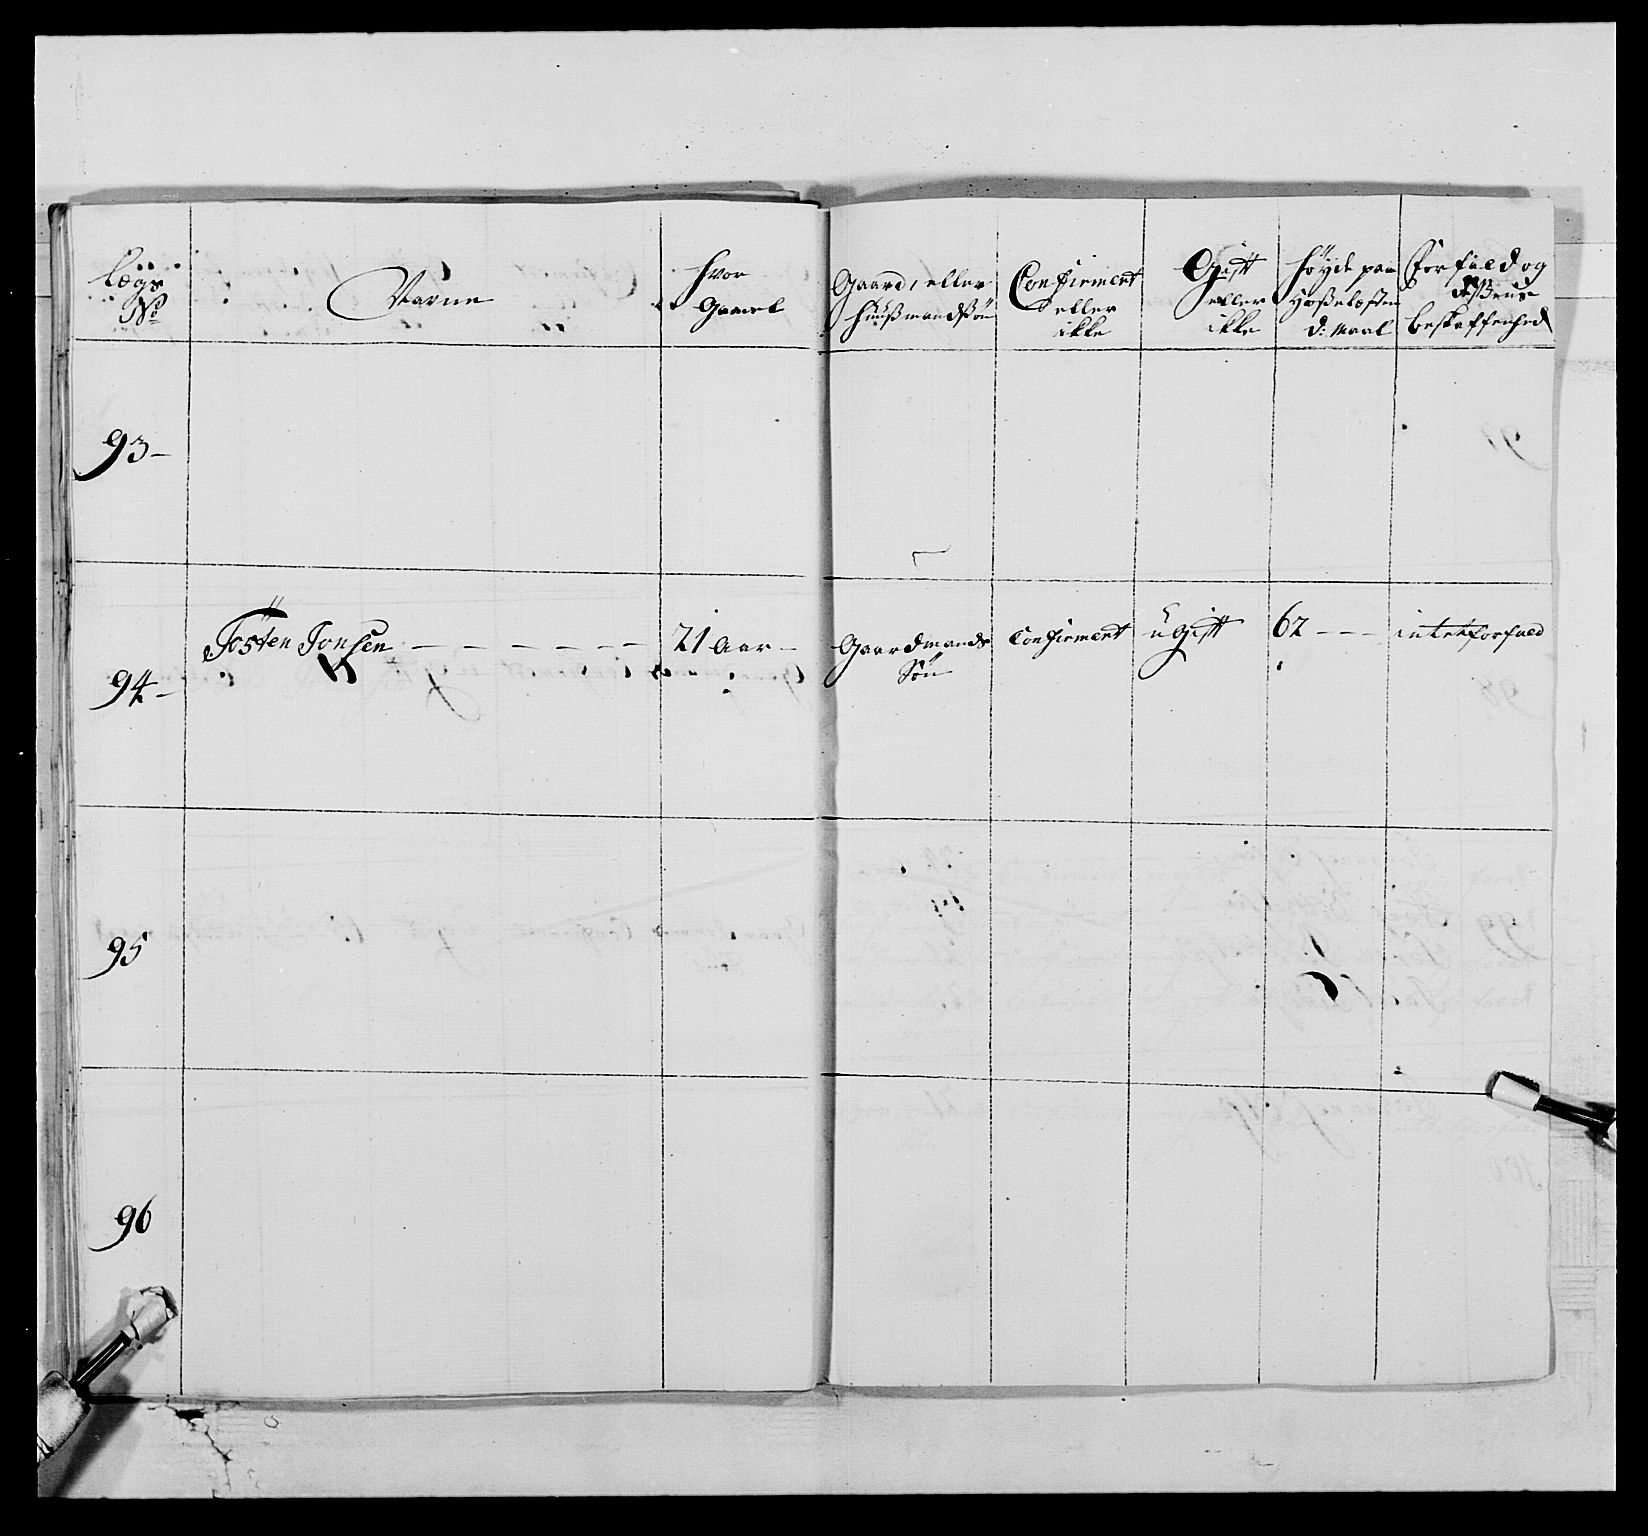 Lægs
No
Navne
hvor
Gamel
Gaard, eller
Huusmandssön
Confirmert
eller
ikke
Gift
eller
ikke
Höyde paa
Hosselæsten
D: Maal
Forfald og
dessens
beskaffenhed
93
94 Tosten Jonsen 21 Aar Gaardmands Confirmert ugift 62 intet forfald
Sön
95
96